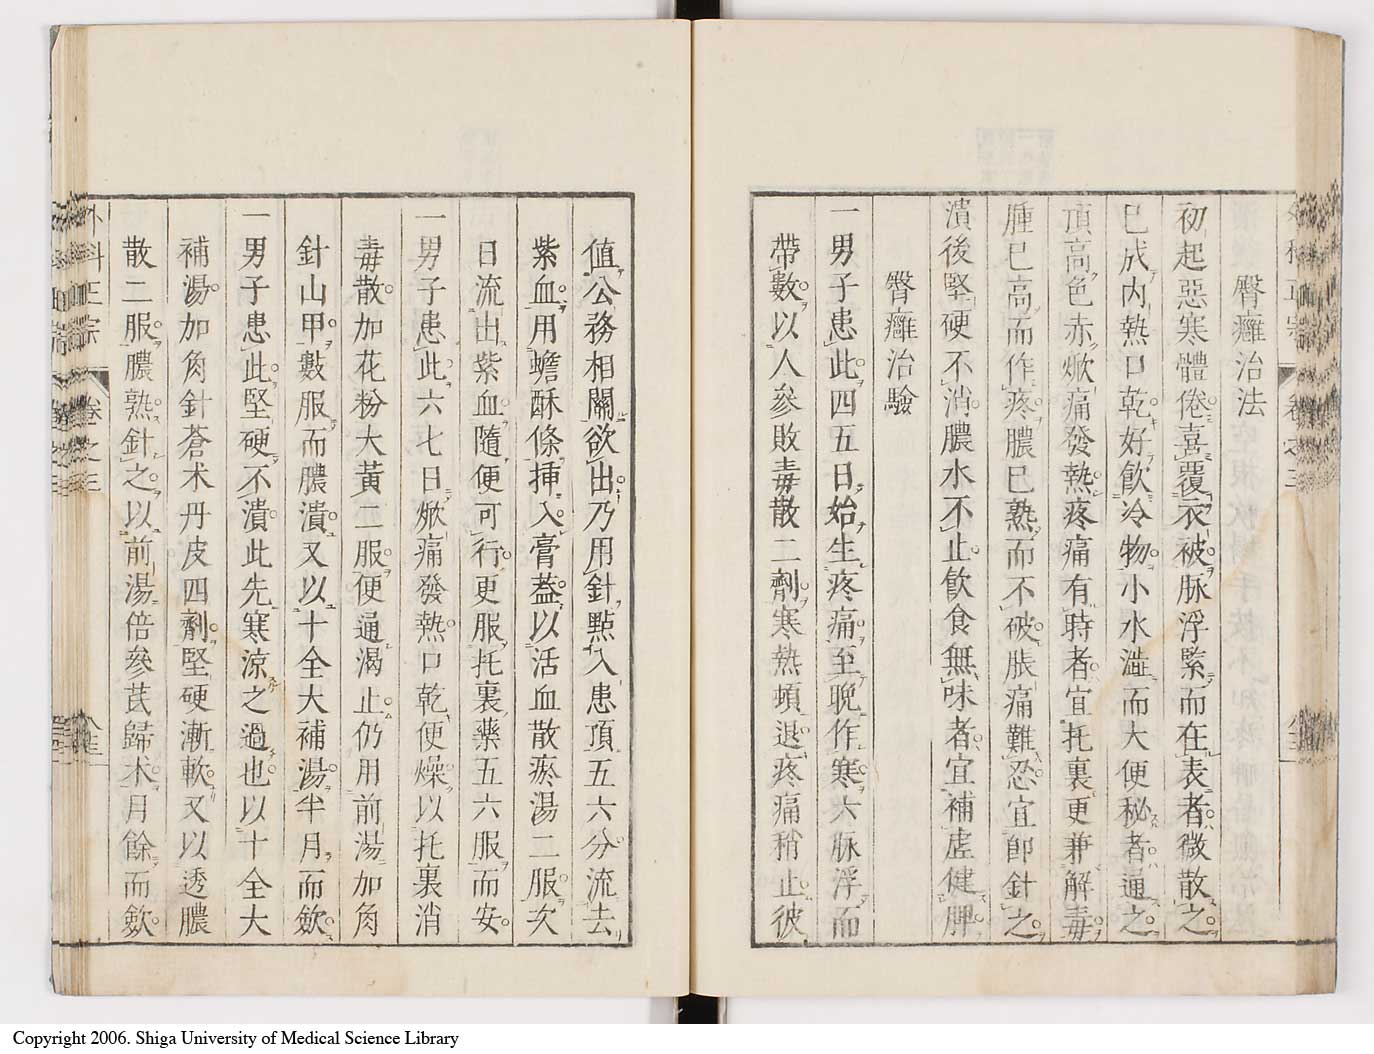 臀癰治法
初起惡寒體倦喜覆衣被脉浮緊而在表者微散之
已成内熱口乾好飲冷物小水澁而大便秘者通之
頂高色赤焮痛發熱疼痛有時者宜托裏更兼解毒
腫已高而作疼膿已熟而不破脹痛難忍宜即針之
潰後堅硬不消膿水不止飲食無味者宜補虚健脾
臀癰治驗
一男子患此四五日始生疼痛至晩作寒六脉浮而
帶數以人參敗毒散二劑寒熱頓退疼痛稍止彼
值公務相關欲出乃用針㸃入患頂五六分流去
紫血用蟾酥條挿入膏葢以活血散瘀湯二服次
日流出紫血隨便可行更服托裏藥五六服而安
一男子患此六七日焮痛發熱口乾便燥以托裏消
毒散加花粉大黃二服便通渴止仍用前湯加角
針山甲數服而膿潰又以十全大補湯半月而歛
一男子患此堅硬不潰此先寒涼之過也以十全大
補湯加角針蒼术丹皮四劑堅硬漸軟又以透膿
散二服膿熟針之以前湯倍參芪歸术月餘而歛
外科正宗
卷之三
Copyright 2006. Shiga University of Medical Science Library